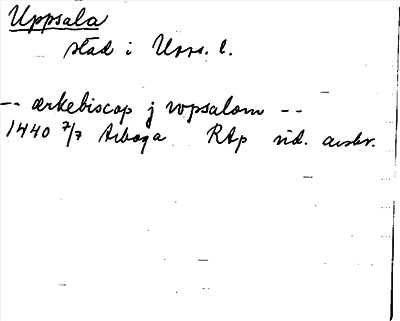 Uppsala
stad i Upps. l.
-- ærkebiscop j wpsalom --
1440 7/7 Arboga RAp sid. avskr.